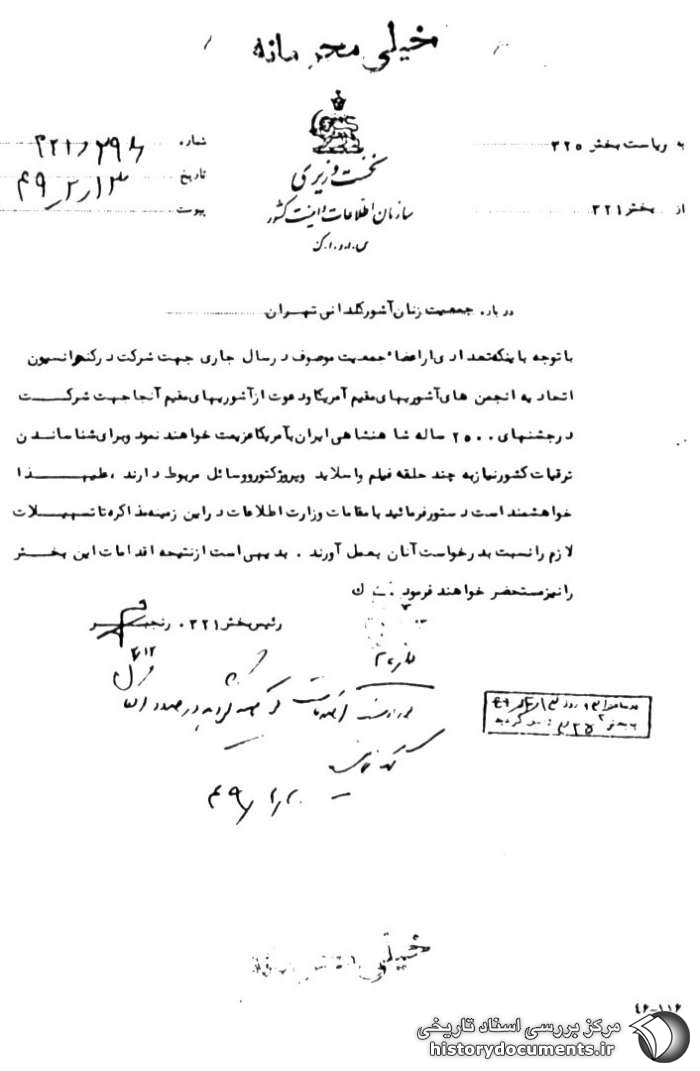 خیلی محرمانه
نخست وزیری
سازمان اطلاعات و امنیت کشور
س.ا.و.ا.ک
به ریاست بخش ۳۲۵
از بخش ۳۲۱
شماره
تاریخ ۴۹/۲/۱۳
پیوست
درباره جمعیت زنان آشور کلدانی تهران
با توجه باینکه تعدادی از اعضاء جمعیت موصوف در سال جاری جهت شرکت در کنوانسیون
اتحادیه انجمن های آشوریهای مقیم آمریکا و دعوت از آشوریهای مقیم آنجا جهت شرکت
در جشنهای ۲۵۰۰ ساله شاهنشاهی ایران بآمریکا عزیمت خواهند نمود و برای شناساندن
ترقیات کشور نیاز به چند حلقه فیلم و اسلاید و پروژکتور و وسائل مربوط دارند ، علیهذا
خواهشمند است دستور فرمائید با مقامات وزارت اطلاعات در این زمینه مذاکره تا تسهیلات
لازم را نسبت بدرخواست آنان بعمل آورند . بدیهی است از نتیجه اقدامات این بخش
را نیز مستحضر خواهند فرمود .
رئیس بخش ۳۲۱ . رنجبر
۴۶-۱۱۶
مرکز بررسی اسناد تاریخی
historydocuments.ir